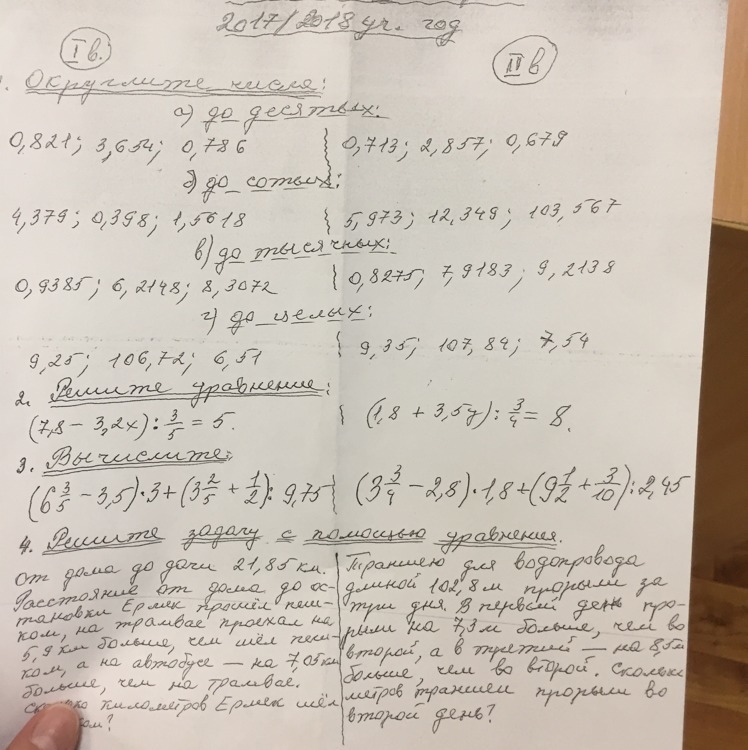 2017/2018 уч. год
I в. II в
1. Округлите числа:
а) до десятых:
0,821; 3,654; 0,786 0,713; 2,857; 0,679
б) до сотых:
4,379; 0,398; 1,5618 5,973; 12,349; 103,567
в) до тысячных:
0,9385; 6,2148; 8,3072 0,8275; 7,9183; 9,2138
г) до целых:
9,25; 106,72; 6,51 9,35; 107,84; 7,54
2. Решите уравнение:
(7,8 – 3,2х) : 3/5 = 5. (1,8 + 3,5у) : 3/4 = 8.
3. Вычислите:
(6 3/5 – 3,5) · 3 + (3 2/5 + 1/2) : 9,75 (3 3/4 – 2,8) · 1,8 + (9 1/2 + 3/10) : 2,45
4. Решите задачу с помощью уравнения.
От дома до дачи 21,85 км.
Расстояние от дома до ос-
тановки Ермек прошёл пеш-
ком, на трамвае проехал на
5,9 км больше, чем шёл пеш-
ком, а на автобусе – на 7,05 км
больше, чем на трамвае.
километров Ермек шёл
Траншею для водопровода
длиной 102,8 м прорыли за
три дня. В первый день про-
рыли на 7,3 м больше, чем во
второй, а в третий – на 8,5 м
больше, чем во второй. Сколько
метров траншеи прорыли во
второй день?